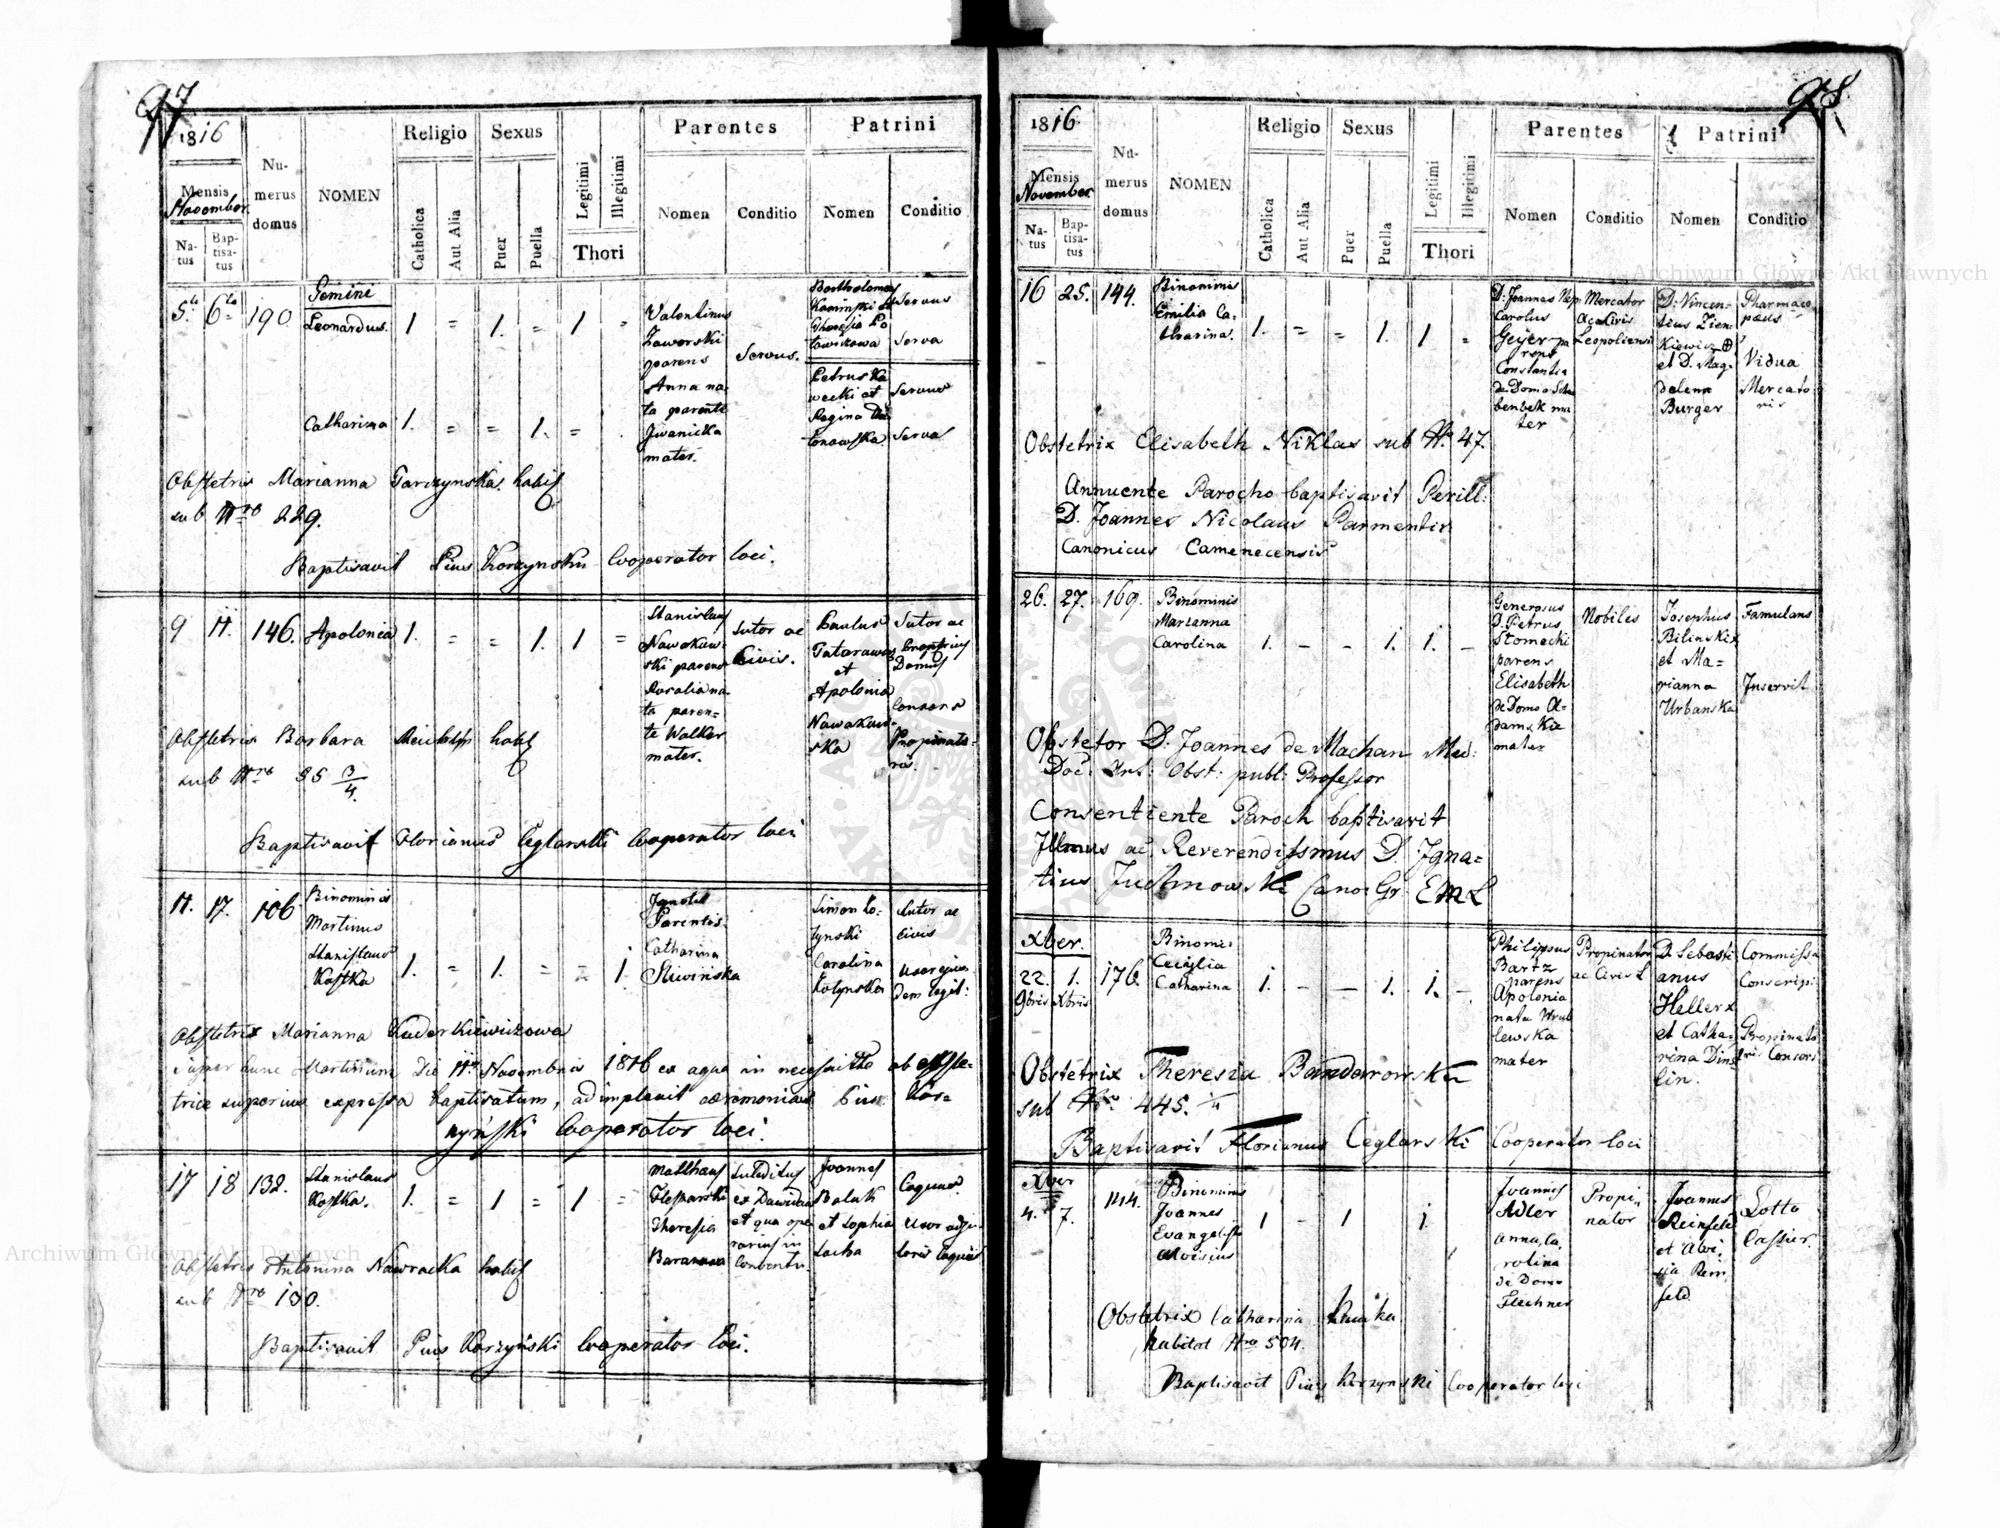 97
1816
Mensis
November
Natus
Baptisatus
Numerus domus
NOMEN
Religio
Catholica
Aut Alia
Sexus
Puer
Puella
Legitimi
Illegitimi
Thori
Parentes
Nomen
Conditio
Patrini
Nomen
Conditio
5. 6. 190
Gemini
Leonardus.
1 = 1. = 1 =
Valentinus
Jaworski
parens
Anna na-
ta parente
Iwanicka
mater.
Servus.
Bartholomey
Kaminski et
Theresia
Servus
Serva
Catharina 1. = = 1. =
Petrus
et
Regina
Servus
Serva
Obstetrix Marianna Garzynska habit
sub Nro 229.
Baptisavit Pius Korzynski Cooperator loci.
9 11. 146. Apolonia 1. = = 1. 1 =
Stanislaus
Nowakow-
ski parens
Rosalia na-
ta paren-
te Walker
mater.
Sutor ac
Civis.
Paulus
et
Apolonia
Nowakow-
ska
Sutor ac
Domus
Consors
Propinato-
ris.
Obstetrix Barbara habit
sub Nro 35 3/4.
Baptisavit Florianus Ceglarski Cooperator loci
11. 17. 106
Binominis
Martinus
Stanislaus
Kostka
1. = 1. = = 1.
Ignoti
Parentis
Catharina
Sliwińska
Simon Ko-
tynski
Carolina
Kotynska
Sutor ac
civis
Uxor ejus
dem legit:
Obstetrix Marianna Kuderkiewiczowa
Super hunc Martinum die 11. Novembris 1816 ex aqua in necessitate ab obste-
trice superius expressa baptisatum, adimplevit ceremonias Pius Kor-
zyński Cooperator loci.
17 18 132.
Stanislaus
Kostka.
1. = 1 = 1 =
Matthaus
Theresia
Subditus
ex
et qua ope-
rarius in
Conventu.
Joannes
et Sophia
Coquus.
Uxor
Obstetrix Antonina Nawracka habit
sub Nro 130.
Baptisavit Pius Korzyński Cooperator loci.
98
1816
Mensis
November
Natus
Baptisatus
Numerus domus
NOMEN
Religio
Catholica
Aut Alia
Sexus
Puer
Puella
Legitimi
Illegitimi
Thori
Parentes
Nomen
Conditio
Patrini
Nomen
Conditio
16 25. 144.
Binominis
Emilia Ca-
tharina.
1. = = 1. 1 =
D. Joannes Nep.
Carolus
Geyer pa-
rens
Constantia
de Domo
mater
Mercator
ac Civis
Leopoliensis
D. Vincen-
tius Zien-
kiewicz
et D. Mag-
dalena
Burger
Pharmaco-
paeus
Vidua
Mercato-
ris
Obstetrix Elisabeth Niklas sub Nr. 47.
Annuente Parocho baptisavit Perill:
D. Joannes Nicolaus Parmentir
Canonicus Camenecensis
26. 27. 169.
Binominis
Marianna
Carolina
1. - - 1. 1. -
Generosus
D. Petrus
Stomecki
parens
Elisabeth
de Domo A-
damska
mater
Nobiles
Josephus
Bilinski
et Ma-
rianna
Urbanska
Famulans
Inservit
Obstetor D. Joannes de Machan Med:
Doc: Art: Obst: publ: Professor
Consentiente Paroch baptisavit
Illmus ac Reverendissmus D. Igna-
tius Cano: Gr: EML
Xber.
22. 1. 176.
9bris Xbris
Binomi:
Cecylia
Catharina
1. - - 1. 1. -
Philippus
Bartz
parens
Apolonia
nata Wrub-
lewska
mater
Propinator
ac Civis L
D. Sebasti-
anus
Heller
et Catha-
rina Dins-
lin.
Commissa:
Conscrip:
Propinato-
ris Consors
Obstetrix Theresia Bandarowska
sub Nro 445. 1/4
Baptisavit Florianus Ceglarski Cooperator loci
Xber
4. 7. 144.
Binominis
Joannes
Evangelista
Aloisius
1 - 1 1.
Joannes
Adler
Anna, Ca-
rolina
de Domo
Flechner
Propi-
nator
Joannes
Reinfeld
et Aloi-
sia Rein-
feld
Lotto
Cassier.
Obstetrix Catharina
habitat Nro 504.
Baptisavit Pius Korzynski Cooperator loci
Archiwum Główne Akt Dawnych
Archiwum Główne Akt Dawnych